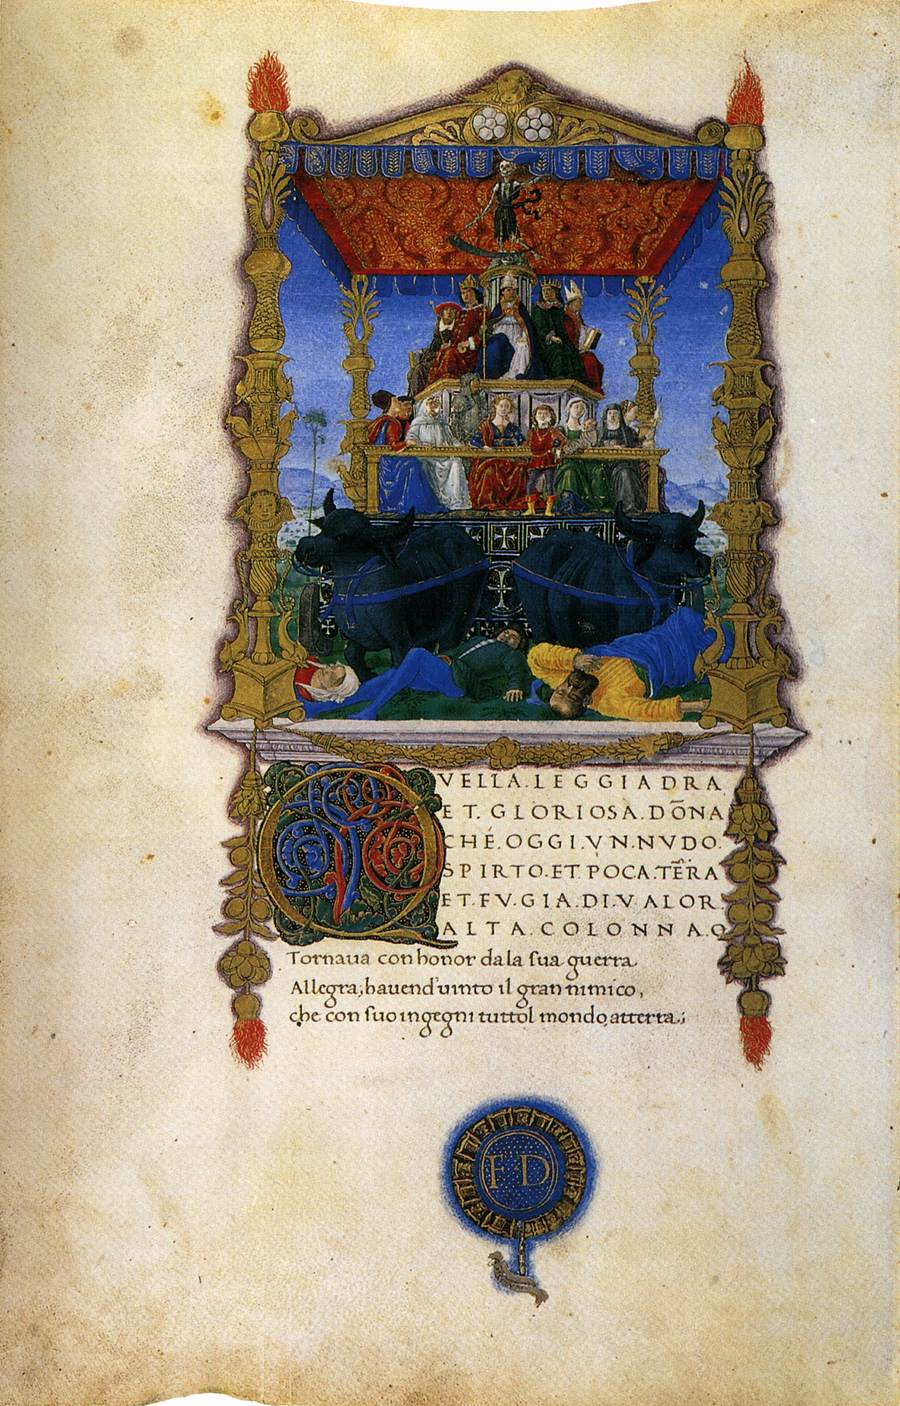 QVELLA.LEGGIADRA
ET.GLORIOSA.DŌNA
CHÉ.OGGI.VN.NVDO.
SPIRTO.ET.POCA.TĒRA
ET.FV.GIA.DI.VALOR.
ALTA.COLONNA.O
Tornaua con honor dala sua guerra
Allegra, hauend'uinto il gran nimico,
che con suo ingegni tuttol mondo atterra;
F D